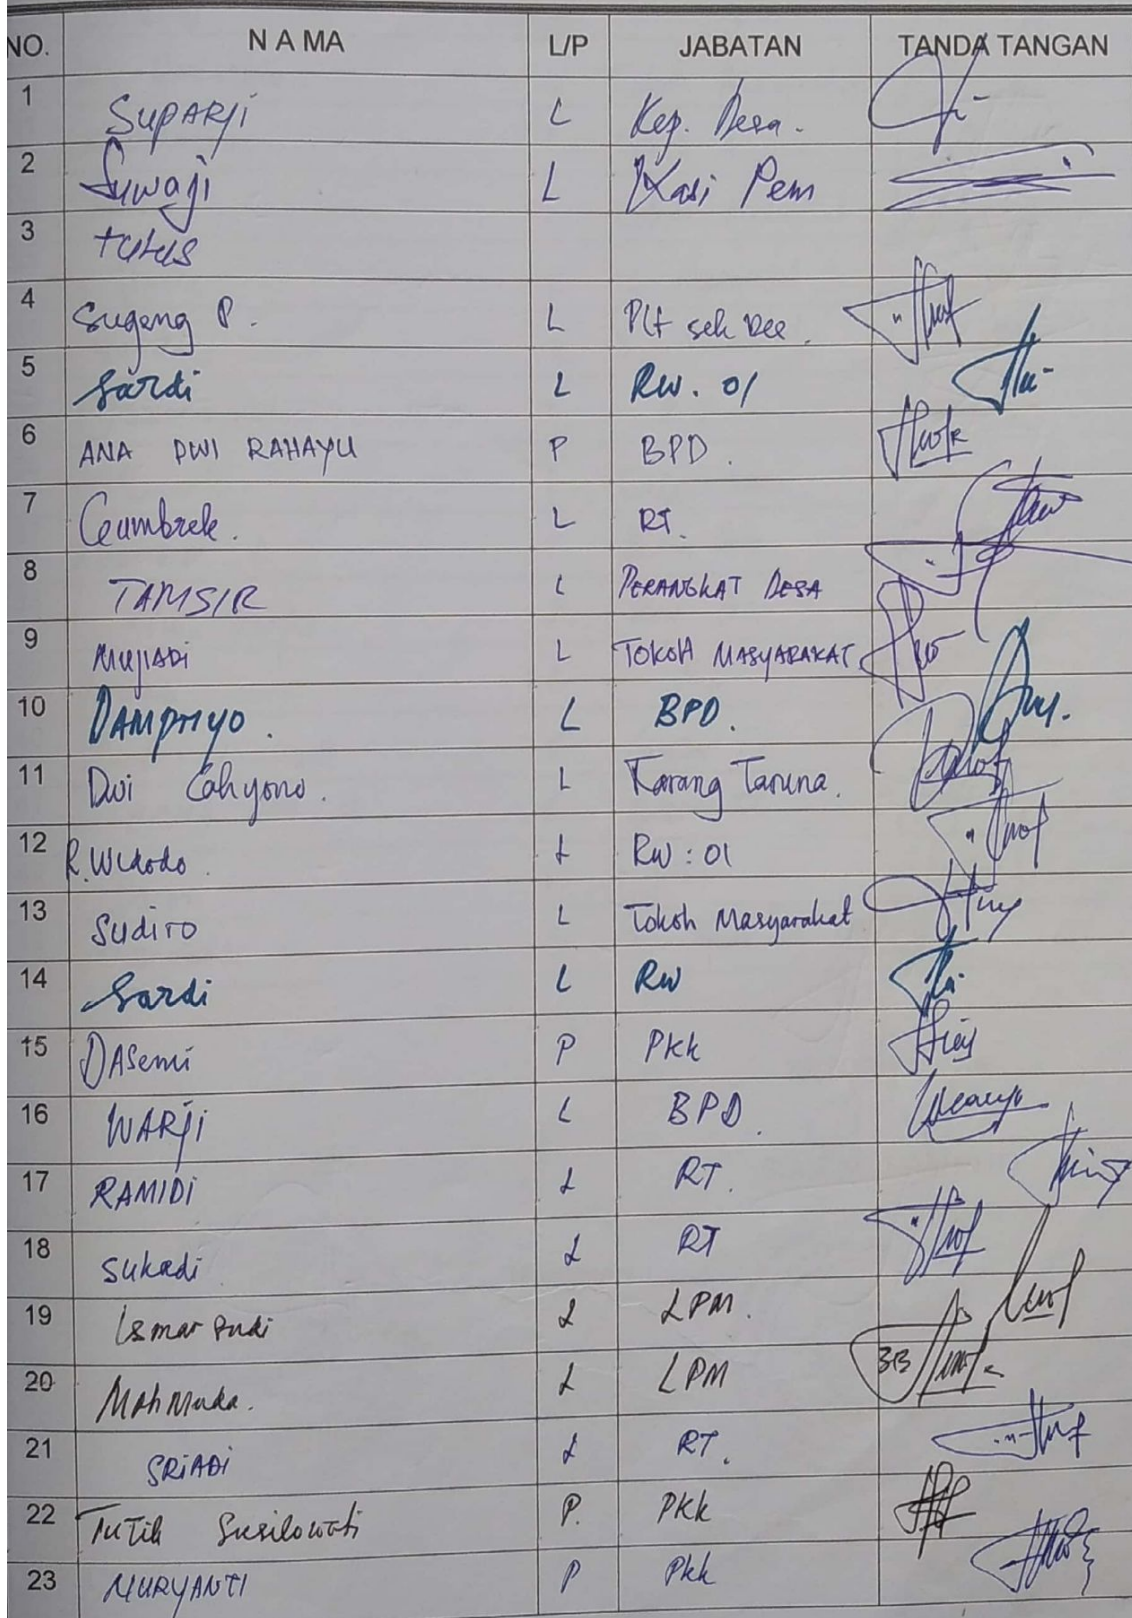 NO. N A M A L/P JABATAN TANDA TANGAN
1 SUPARJI L Kep. Desa.
2 Suwaji L Kasi Pem
3 tutus
4 Sugeng P. L Plt sek Des.
5 Sardi L RW. 01
6 ANA DWI RAHAYU P BPD.
7 Gumbrek. L RT.
8 TAMSIR L PERANGKAT DESA
9 MUJIADI L TOKOH MASYARAKAT
10 DAMPRIYO. L BPD.
11 Dwi Cahyono. L Karang Taruna.
12 R. Widodo. L RW : 01
13 Sudiro L Tokoh Masyarakat
14 Sardi L RW
15 DASemi P PKK
16 WARJI L BPD.
17 RAMIDI L RT.
18 Sukadi L RT
19 Ismar L LPM.
20 MahMuda. L LPM
21 SRIADI L RT.
22 TuTik Susilowati P. PKK
23 NURYANTI P PKK